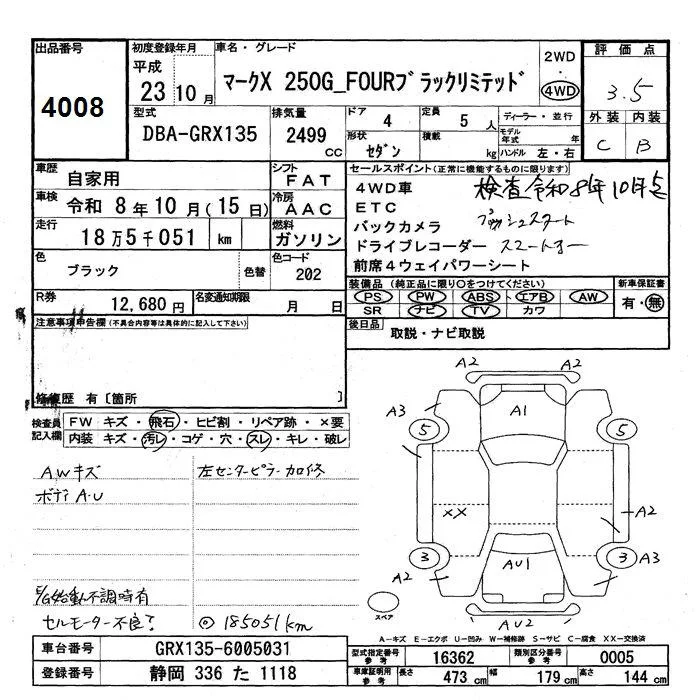 出品番号 4008
初度登録年月 平成 23年 10月
車名・グレード マークX 250G_FOURブラックリミテッド
2WD・4WD
評価点 3.5
外装 C 内装 B
型式 DBA-GRX135
排気量 2499 CC
ドア 4
定員 5 人
形状 セダン
積載 kg
ディーラー・並行
モデル年式 年
ハンドル 左・右
車歴 自家用
シフト FAT
車検 令和 8年 10月 (15日)
冷房 AAC
走行 18万5千051 km
燃料 ガソリン
色 ブラック 色替
色コード 202
R券 12,680円
名変通知期限 月 日
セールスポイント(正常に機能するものに限ります)
4WD車 検査令和8年10月迄
ETC プッシュスタート
バックカメラ
ドライブレコーダー スマートキー
前席4ウェイパワーシート
装備品(純正品に限り○をつけてください)
PS PW ABS エアB AW
SR ナビ TV カワ
新車保証書 有・無
後日品 取説・ナビ取説
注意事項申告欄(不具合内容等は具体的に記入して下さい)
修復歴 有〔箇所 〕
検査員記入欄
FW キズ・飛石・ヒビ割・リペア跡・×要
内装 キズ・汚レ・コゲ・穴・スレ・キレ・破レ
AWキズ
ボディA・U
左センターピラー加修
E/G始動不調時有
セルモーター不良?
◎185051km
A2 A2
A3 A1
5 5
XX A2
3 3 A3
A2 AU1
AU2
スペア
A-キズ E-エクボ U-凹み W-補修跡 S-サビ C-腐食 XX-交換済
車台番号 GRX135-6005031
登録番号 静岡 336 た 1118
型式指定番号 参考 16362
類別区分番号 参考 0005
車庫証明用 参考 長さ 473 cm 幅 179 cm 高さ 144 cm